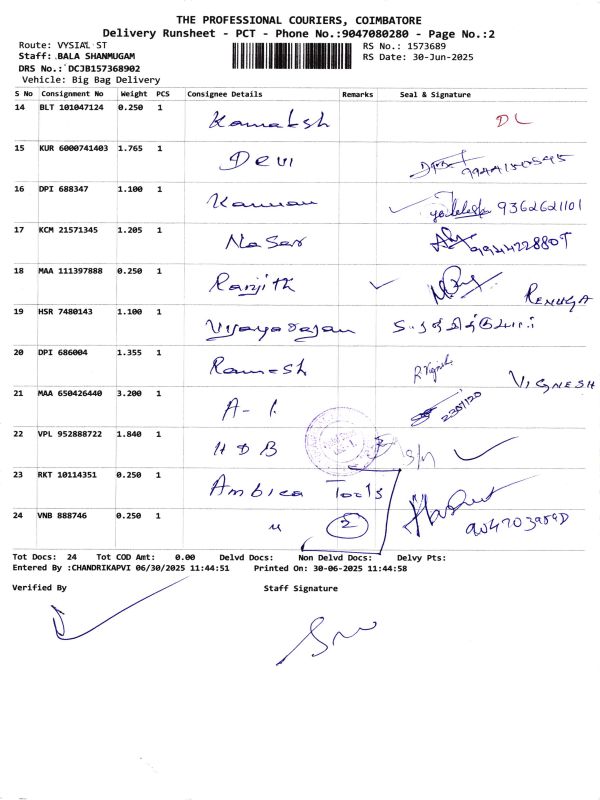 THE PROFESSIONAL COURIERS, COIMBATORE
Delivery Runsheet - PCT - Phone No.:9047080280 - Page No.:2
Route: VYSIAL ST
RS No.: 1573689
Staff: BALA SHANMUGAM
RS Date: 30-Jun-2025
DRS No.: DCJB157368902
Vehicle: Big Bag Delivery
S No Consignment No Weight PCS Consignee Details Remarks Seal & Signature
14 BLT 101047124 0.250 1 Kamaksh DL
15 KUR 6000741403 1.765 1 Devi
16 DPI 688347 1.100 1 Kannan 9362621101
17 KCM 21571345 1.205 1 Naser
18 MAA 111397888 0.250 1 Ranjith RENUGA
19 HSR 7480143 1.100 1 Vijayarajan
20 DPI 686004 1.355 1 Ramesh R Vignesh VIGNESH
21 MAA 650426440 3.200 1 A-1
22 VPL 952888722 1.840 1 HDB
23 RKT 10114351 0.250 1 Ambica Tools
24 VNB 888746 0.250 1 " 2
Tot Docs: 24 Tot COD Amt: 0.00 Delvd Docs: Non Delvd Docs: Delvy Pts:
Entered By :CHANDRIKAPVI 06/30/2025 11:44:51 Printed On: 30-06-2025 11:44:58
Verified By Staff Signature